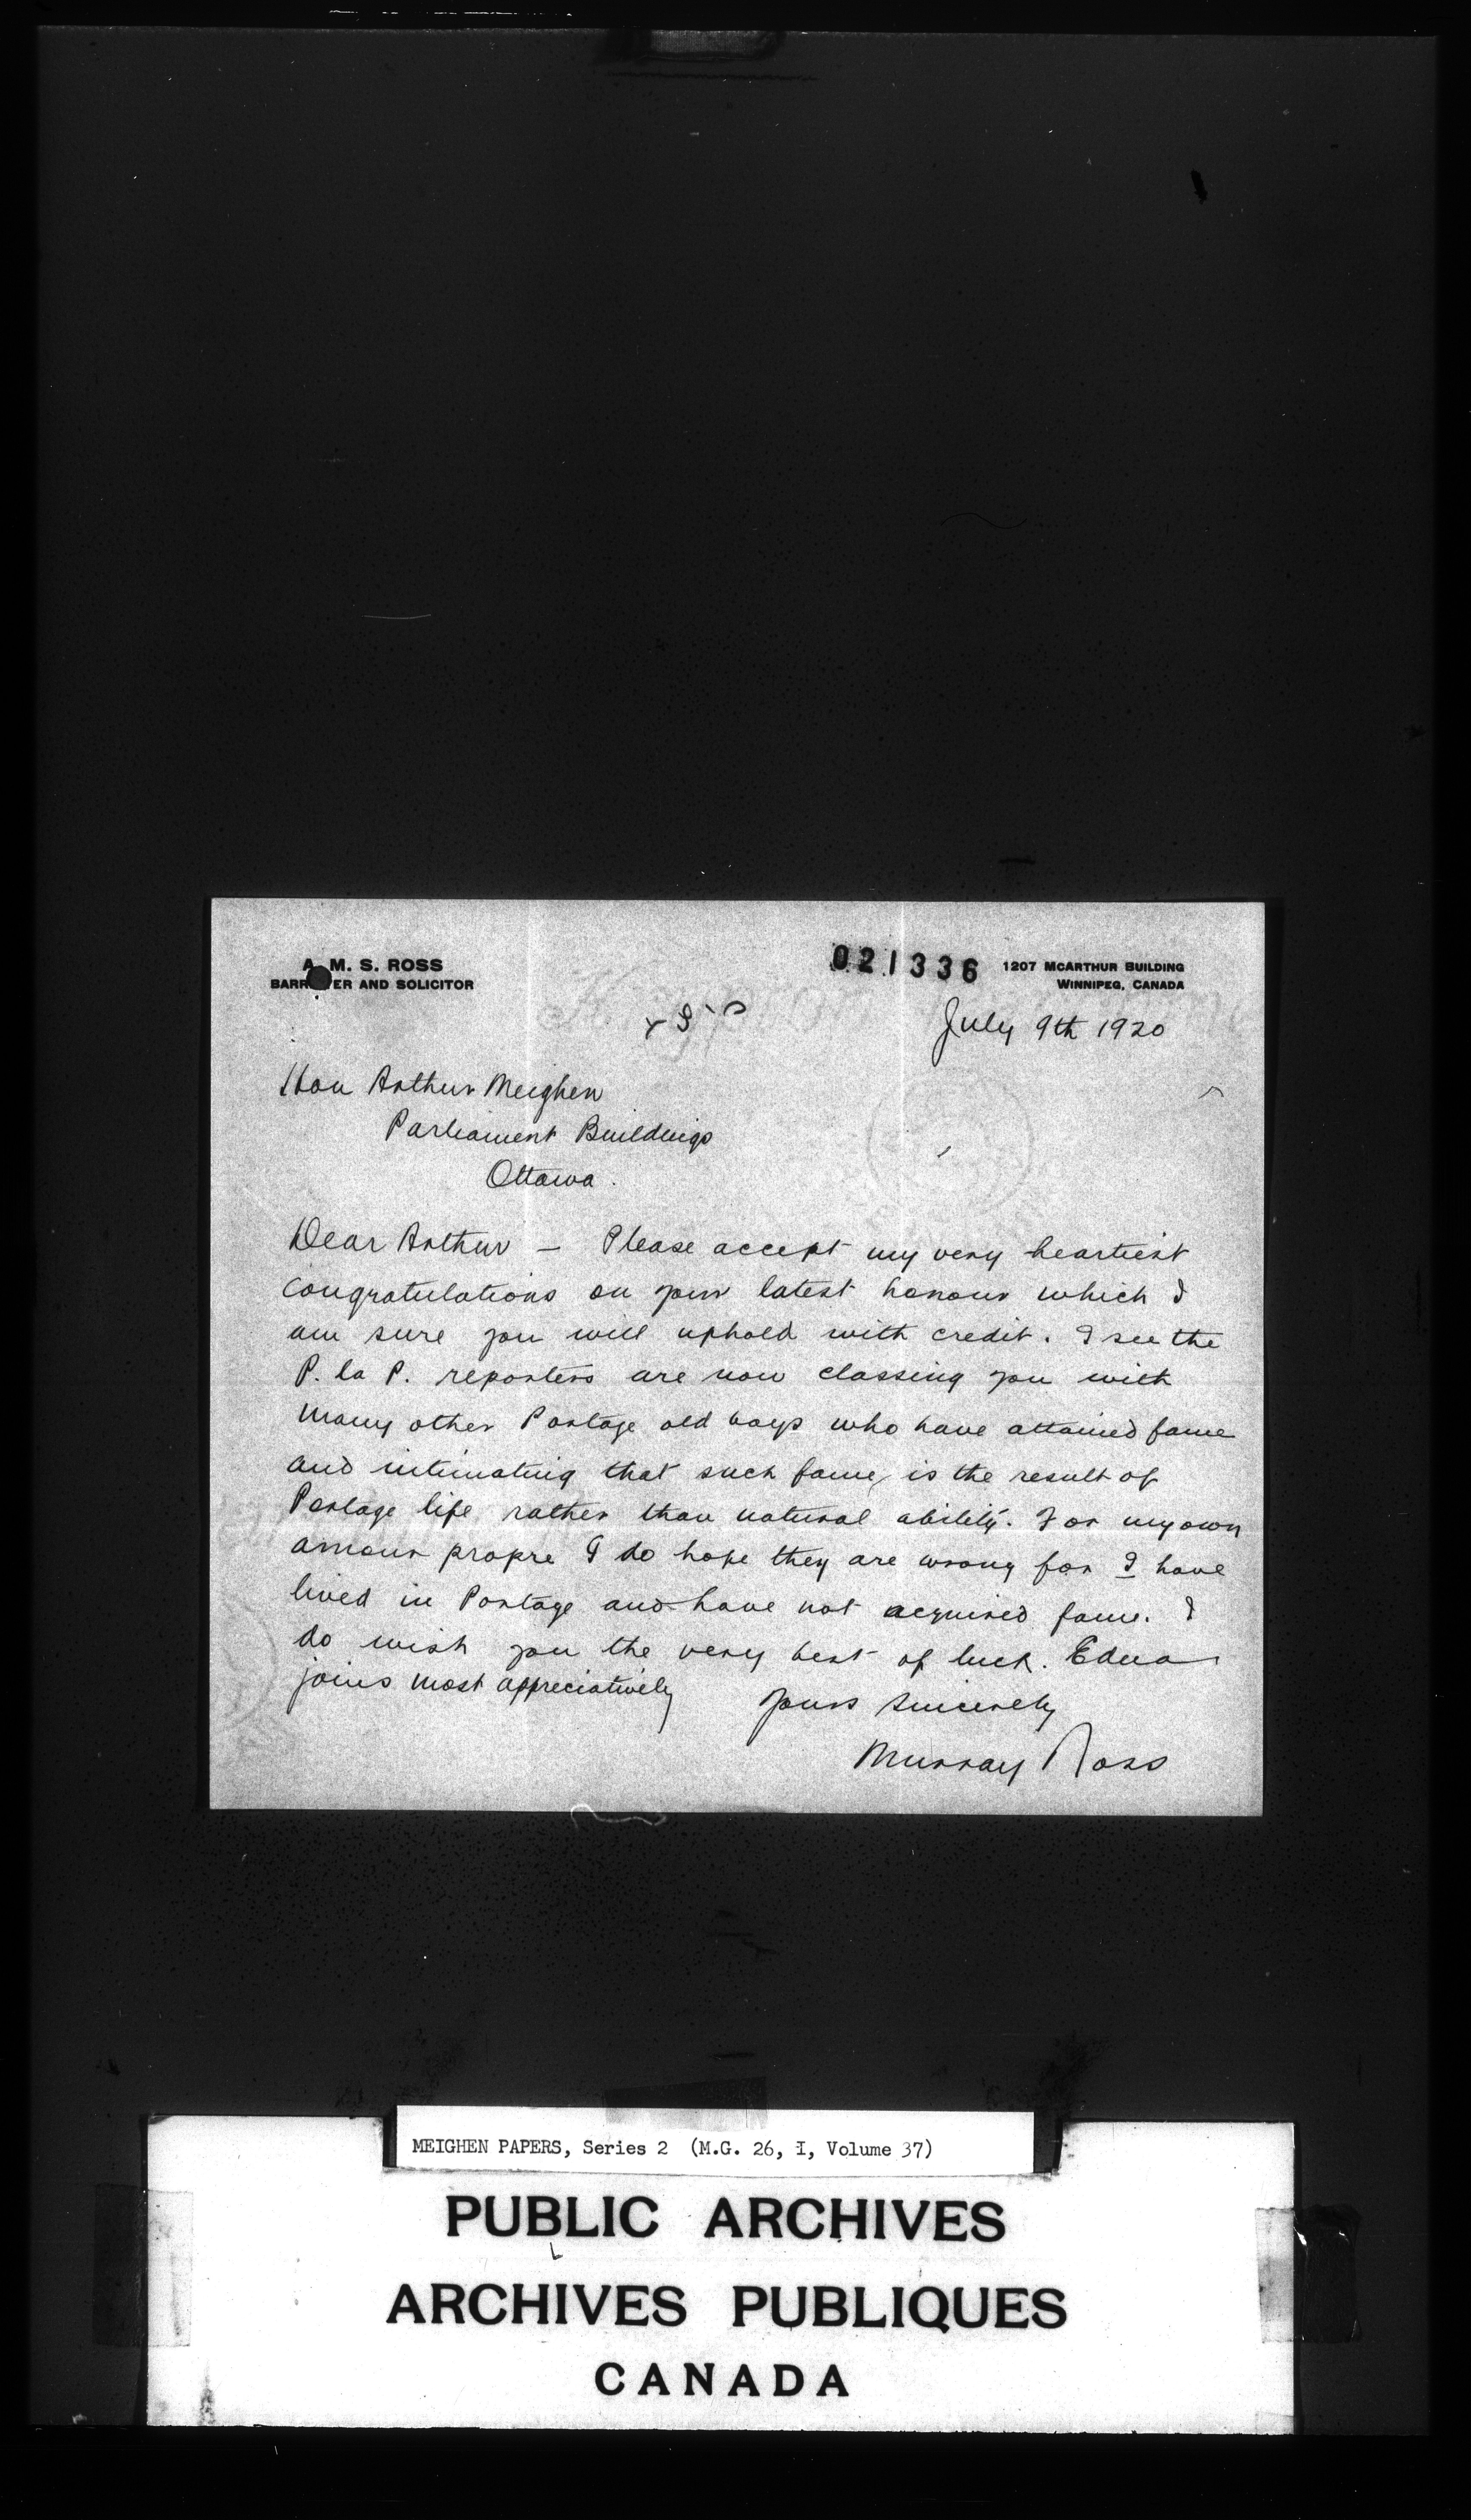 A. M. S. ROSS
BARR ER AND SOLICITOR
021336
1207 MCARTHUR BUILDING
WINNIPEG, CANADA
July 9th 1920
Hon Arthur Meighen
Parliament Buildings
Ottawa.
Dear Arthur — Please accept my very heartiest
congratulations on your latest honour which I
am sure you will uphold with credit. I see the
P. la P. reporters are now classing you with
many other Portage old boys who have attained fame
and intimating that such fame, is the result of
Portage life rather than natural ability. For my own
amour propre I do hope they are wrong for I have
lived in Portage and have not acquired fame. I
do wish you the very best of luck. Edna
joins most appreciatively
Yours Sincerely
Murray Ross
MEIGHEN PAPERS, Series 2 (M.G. 26, I, Volume 37)
PUBLIC ARCHIVES
ARCHIVES PUBLIQUES
CANADA